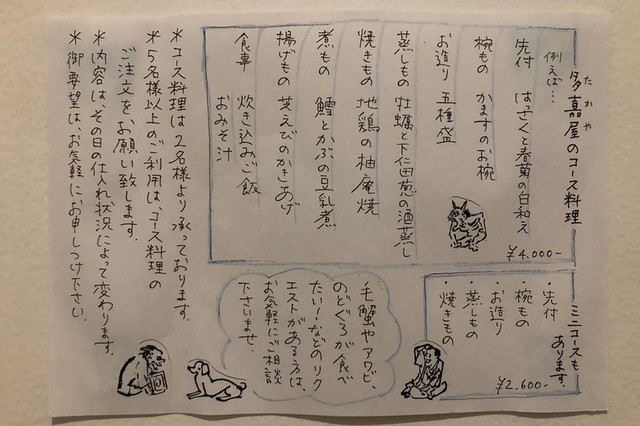 たかや
多嘉屋のコース料理
例えば…
先付 はっさくと春菊の白和え
椀もの かますのお椀
お造り 五種盛
蒸しもの 牡蠣と下仁田葱の酒蒸し
焼きもの 地鶏の柚庵焼
煮もの 鱈とかぶの豆乳煮
揚げもの 芝えびのかきあげ
食事 炊き込みご飯
おみそ汁
¥4.000-
ミニコースも
あります。
・先付
・椀もの
・お造り
・蒸しもの
・焼きもの
¥2.600-
毛蟹やアワビ、
のどぐろが食べ
たい!などのリク
エストがある方は、
お気軽にご相談
下さいませ。
*コース料理は2名様より承っております。
*5名様以上のご利用は、コース料理の
ご注文をお願い致します。
*内容は、その日の仕入れ状況によって変わります。
*御要望は、お気軽にお申しつけ下さい。